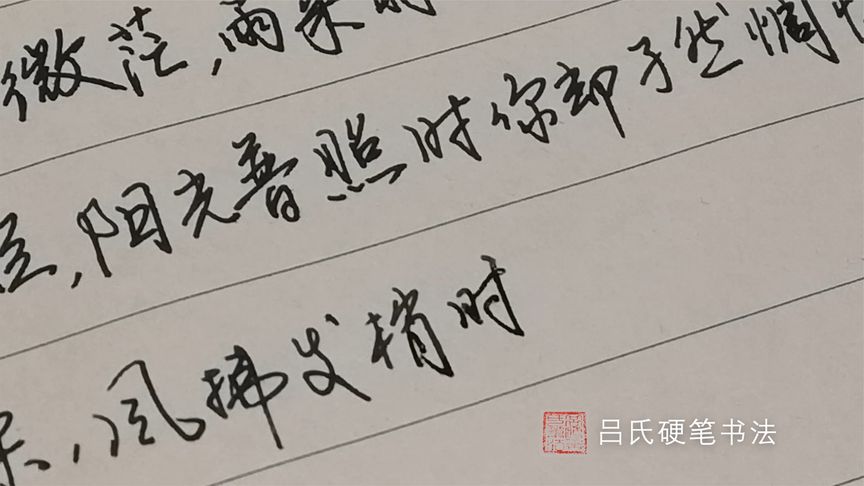 微茫,雨来时
,阳光普照时你却孑然惆
,风拂发梢时
吕氏硬笔书法